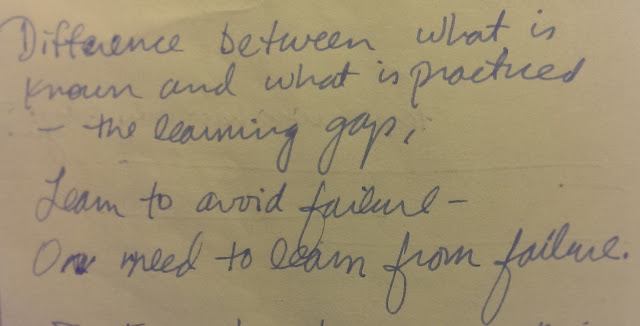 Difference between what is
known and what is practiced
- the learning gap,
Learn to avoid failure -
Our need to learn from failure.